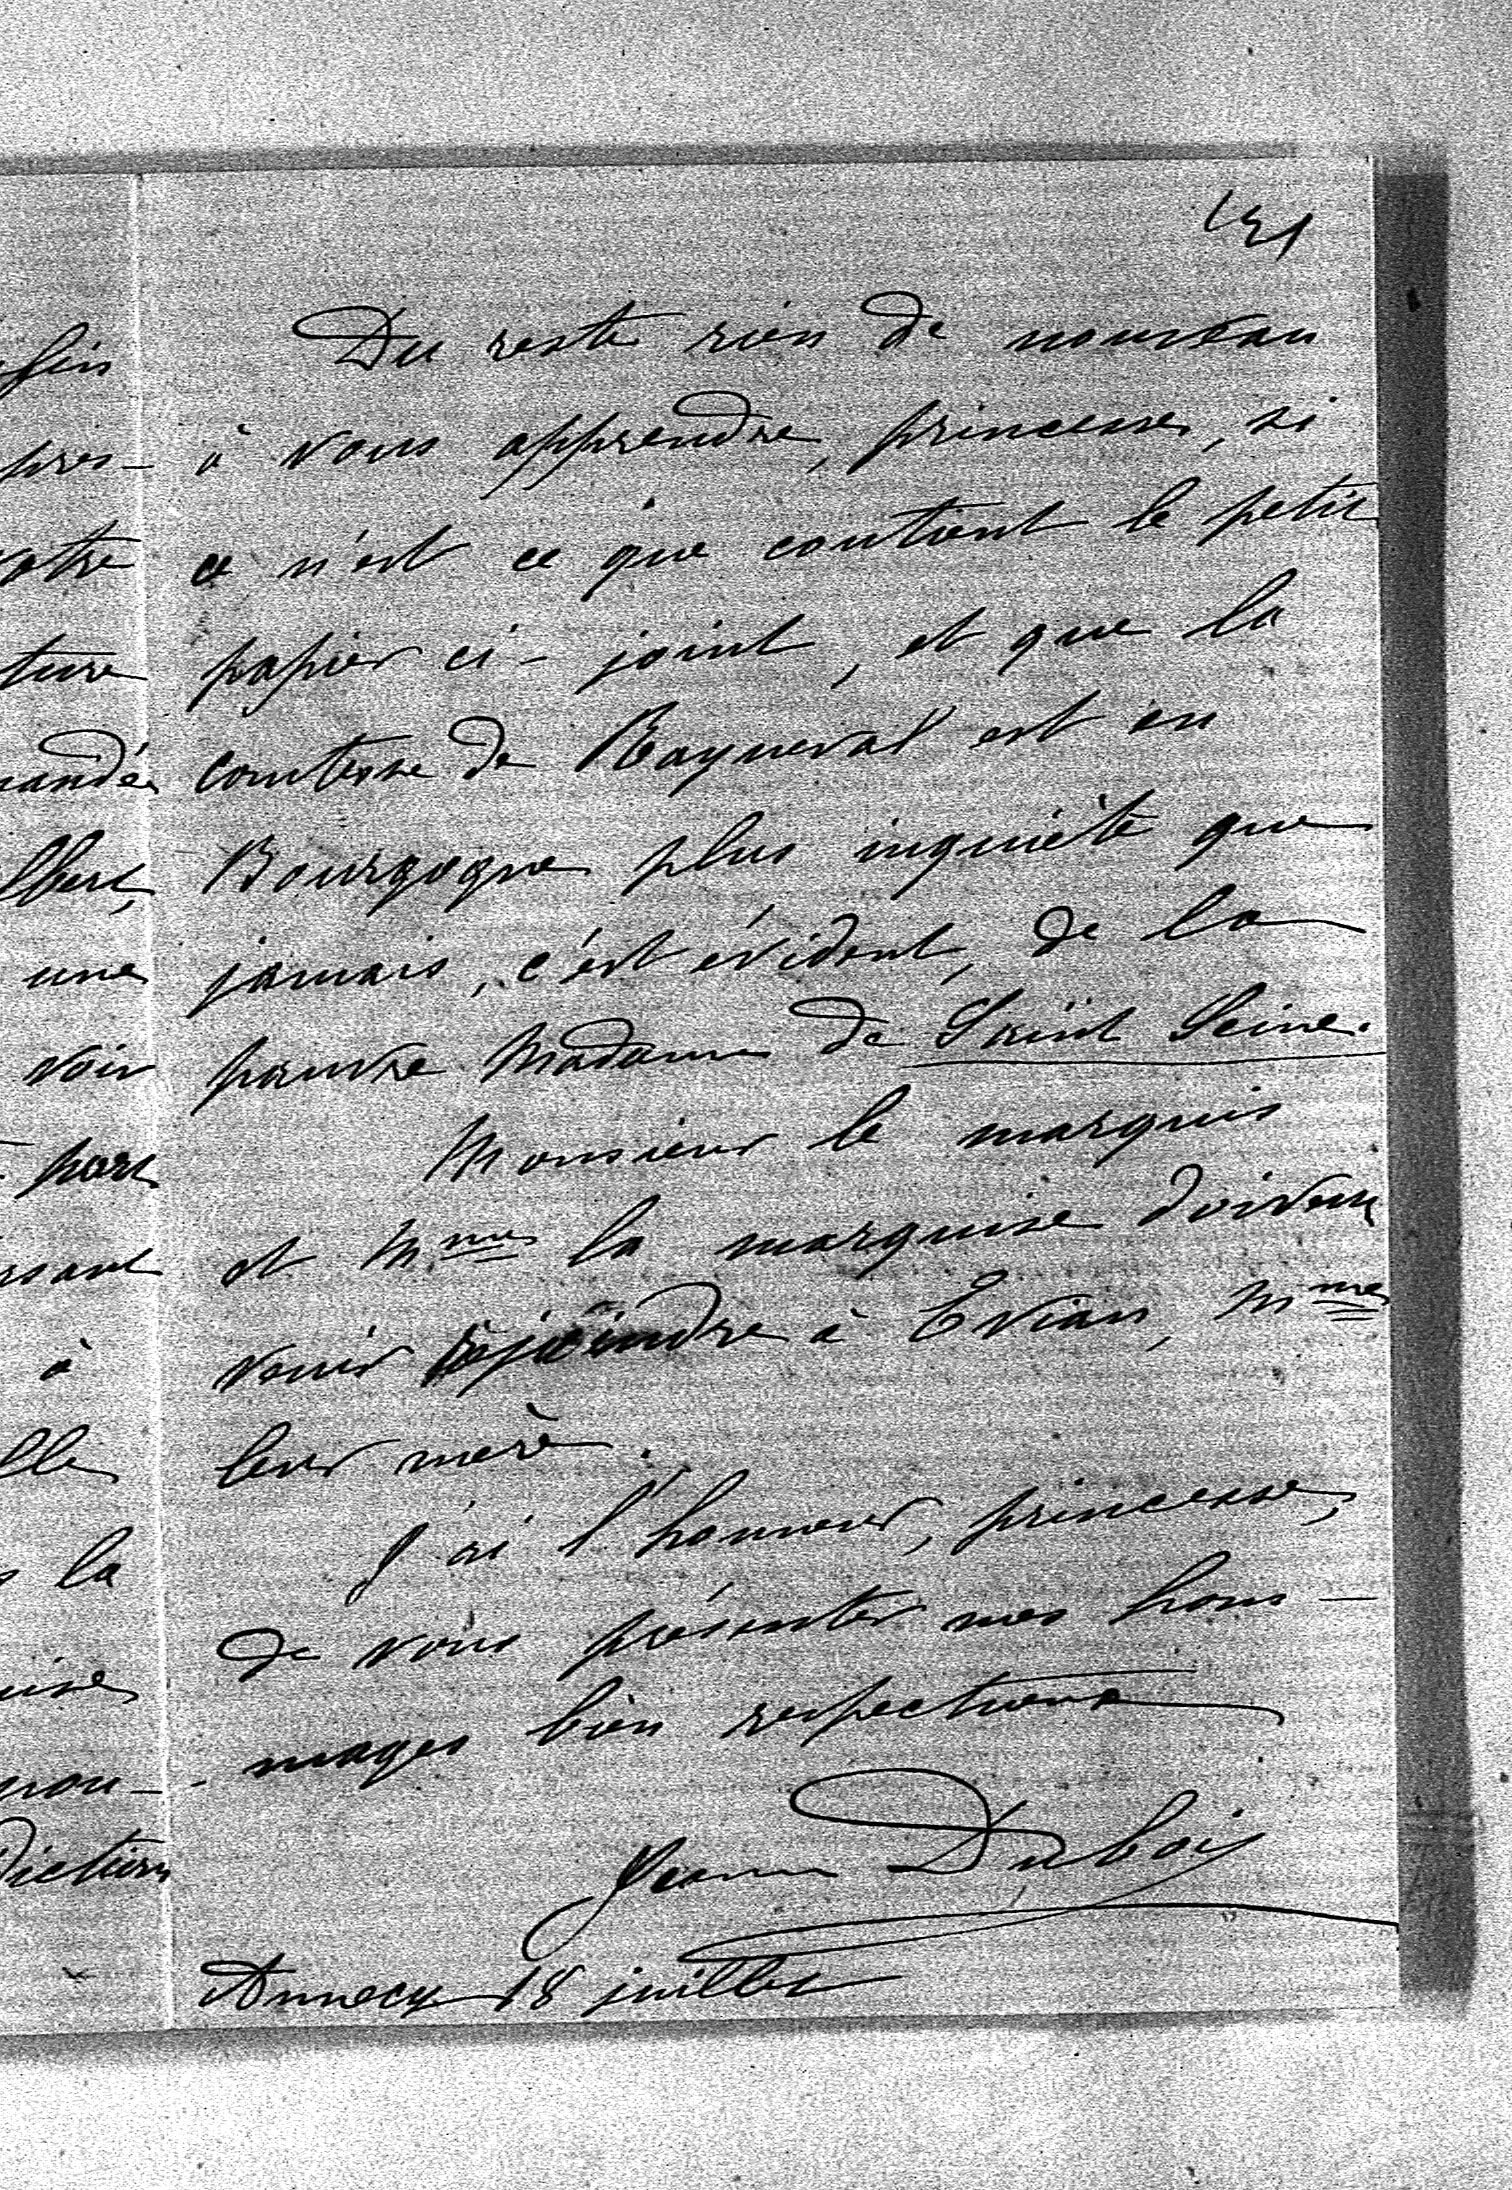 Du reste rien de nouveau
à vous apprendre, princesse, si
ce n'est ce que contient le petit
papier ci-joint, et que la
comtesse de Rayneval est en
Bourgogne plus inquiète que
jamais, c'est évident, de la
pauvre Madame de Saint Seine.
Monsieur le marquis
et Mme la marquise doivent
venir rejoindre à Evian, Mme
leur mère.
J'ai l'honneur, princesse,
de vous présenter mes hom-
mages bien respectueux
Jeanne Dubois
Annecy 18 juillet
fin
pres-
votre
ture
mandée
lbert,
une
voir
part
rsant
à
lle
la
uise
nou-
diction